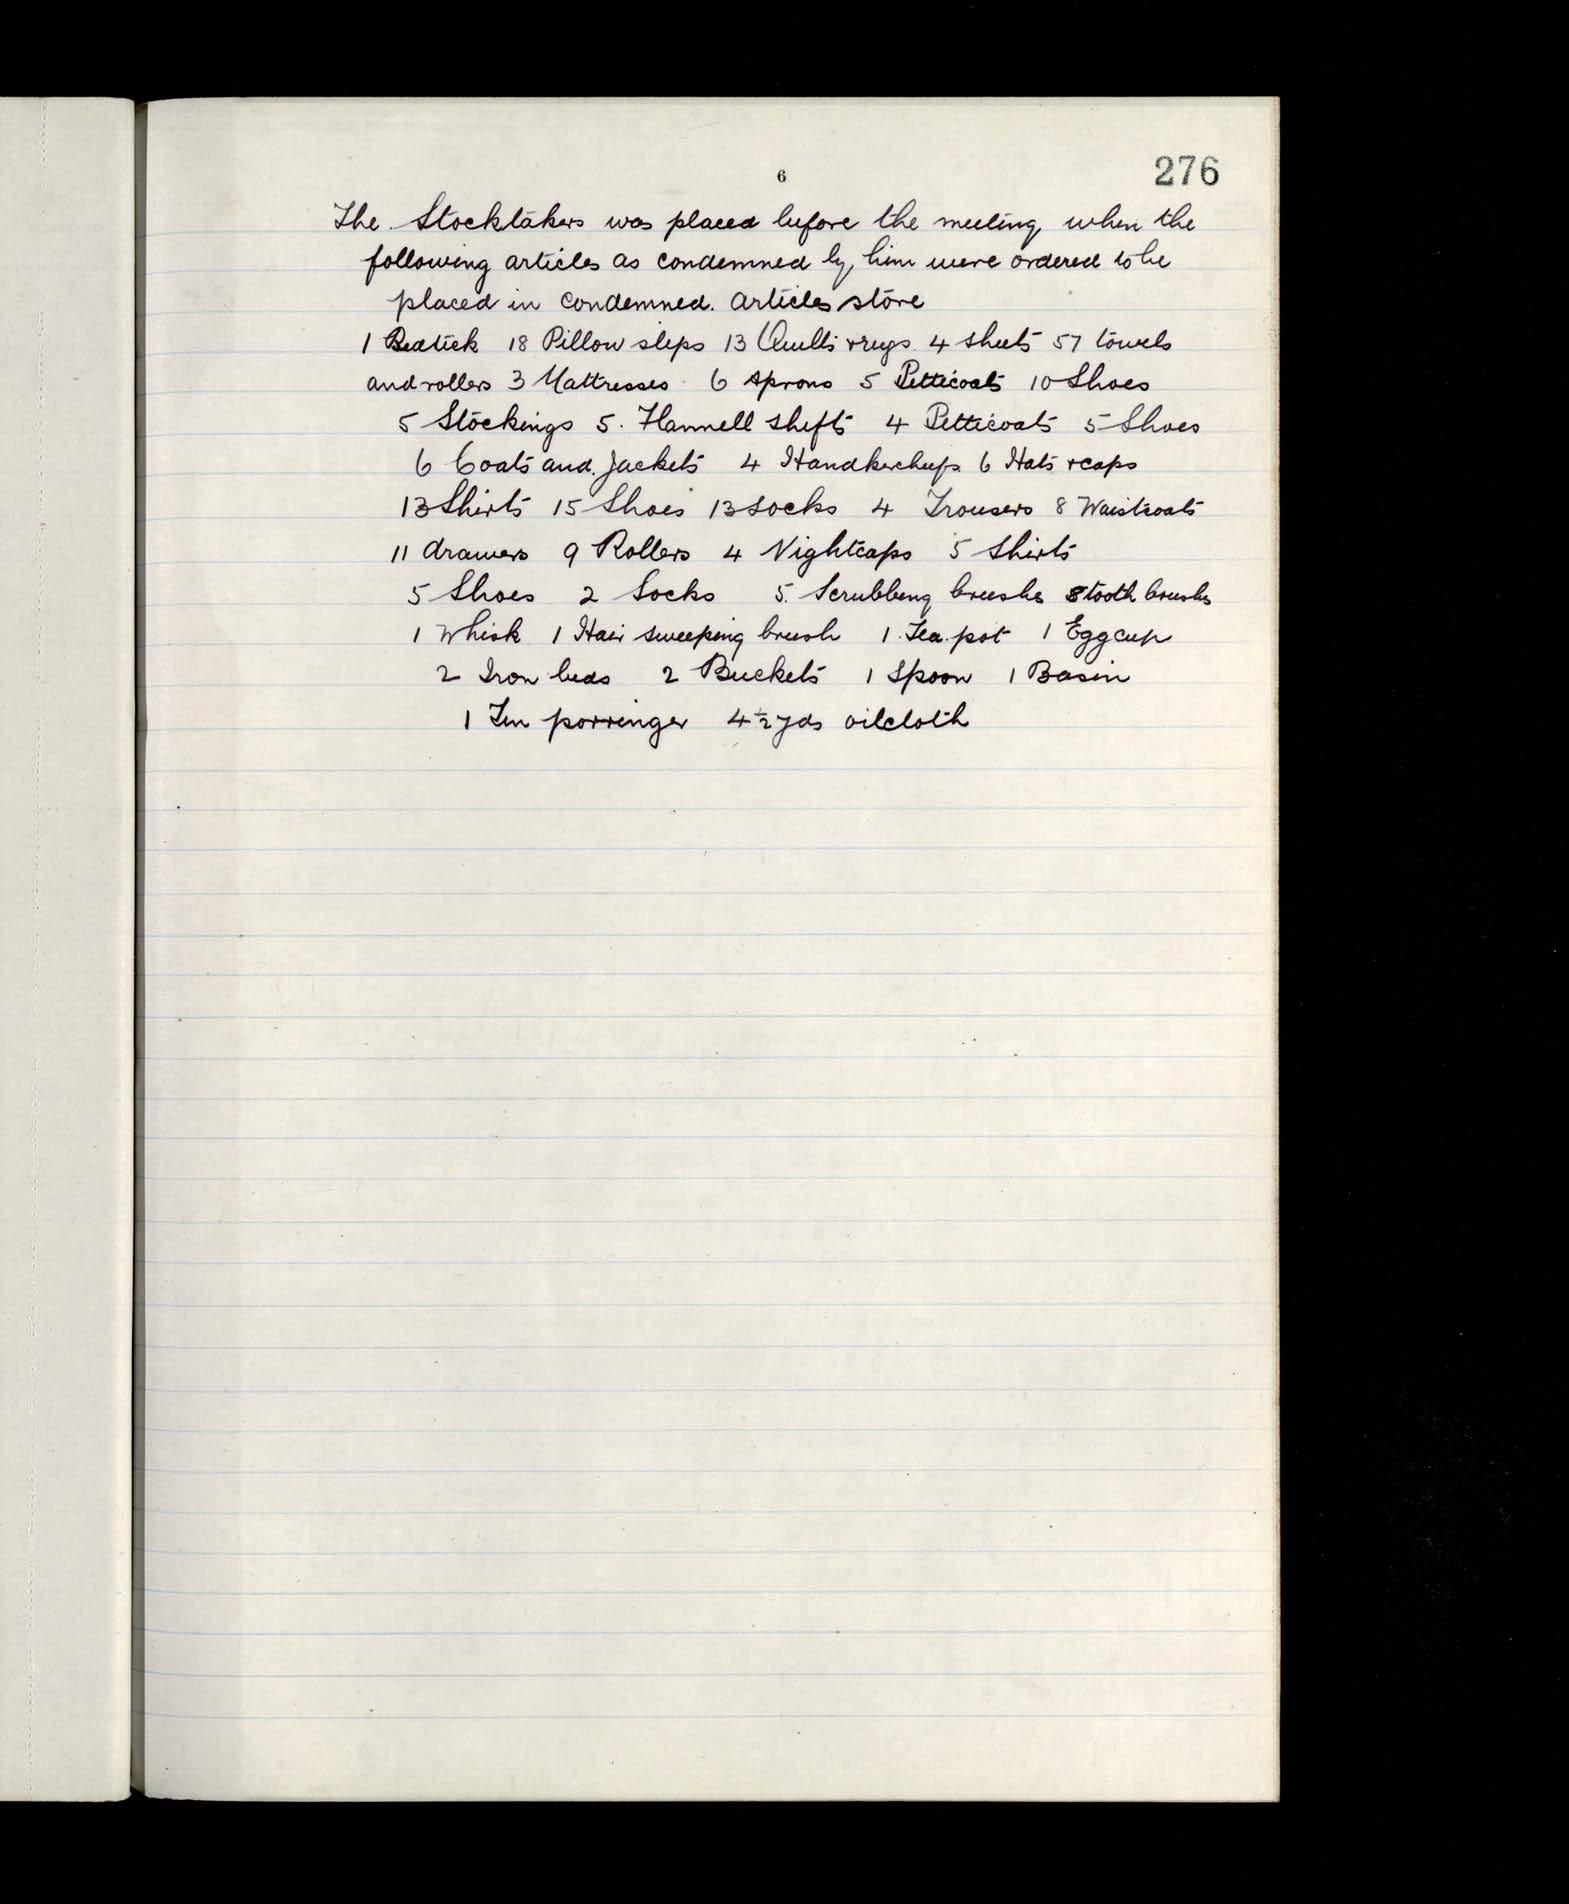 276
6
The Stocktakers was placed before the meeting when the
following articles as condemned by him were ordered to be
placed in condemned. articles store
1 Bedtick 18 Pillow slips 13 Quilts & rugs 4 sheets 57 towels
and rollers 3 Mattresses 6 Aprons 5 Petticoats 10 Shoes
5 Stockings 5. Flannell shifts 4 Petticoats 5 Shoes
6 Coats and Jackets 4 Handkercheifs 6 Hats & caps
13 Shirts 15 Shoes 13 socks 4 Trousers 8 Waistcoats
11 drawers 9 Rollers 4 Nightcaps 5 Shirts
5 Shoes 2 Socks 5. Scrubbing brushes 8 tooth brushes
1 Whisk 1 Hair sweeping brush 1 Tea pot 1 Egg cup
2 Iron beds 2 Buckets 1 Spoon 1 Basin
1 Tin porringer 4½ yds oilcloth